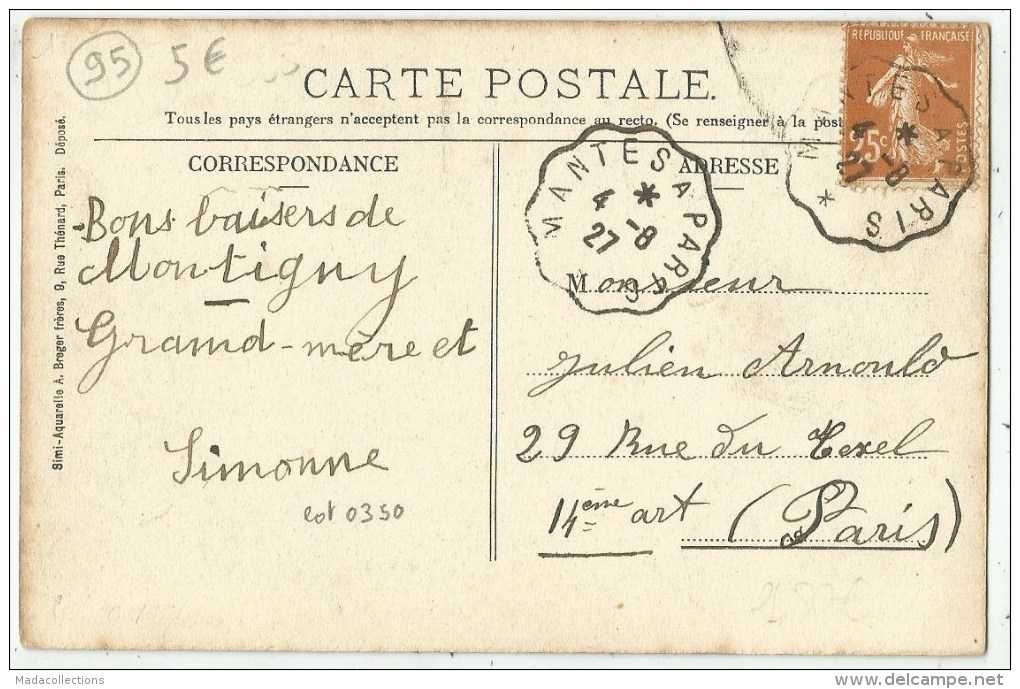 95 5€
CARTE POSTALE.
Tous les pays étrangers n'acceptent pas la correspondance au recto. (Se renseigner à la post
CORRESPONDANCE
ADRESSE
Bons baisers de
Montigny
Grand-mère et
Simonne
cot 0350
Monsieur
Julien Arnould
29 Rue du Texel
14ème art (Paris)
MANTES A PARIS
4 *
27 -8
REPUBLIQUE FRANÇAISE
25c
POSTES
MANTES A PARIS
4 *
27 -8
*
Simi-Aquarelle A. Breger frères, 9, Rue Thénard, Paris. Déposé.
Madacollections
delcampe.net